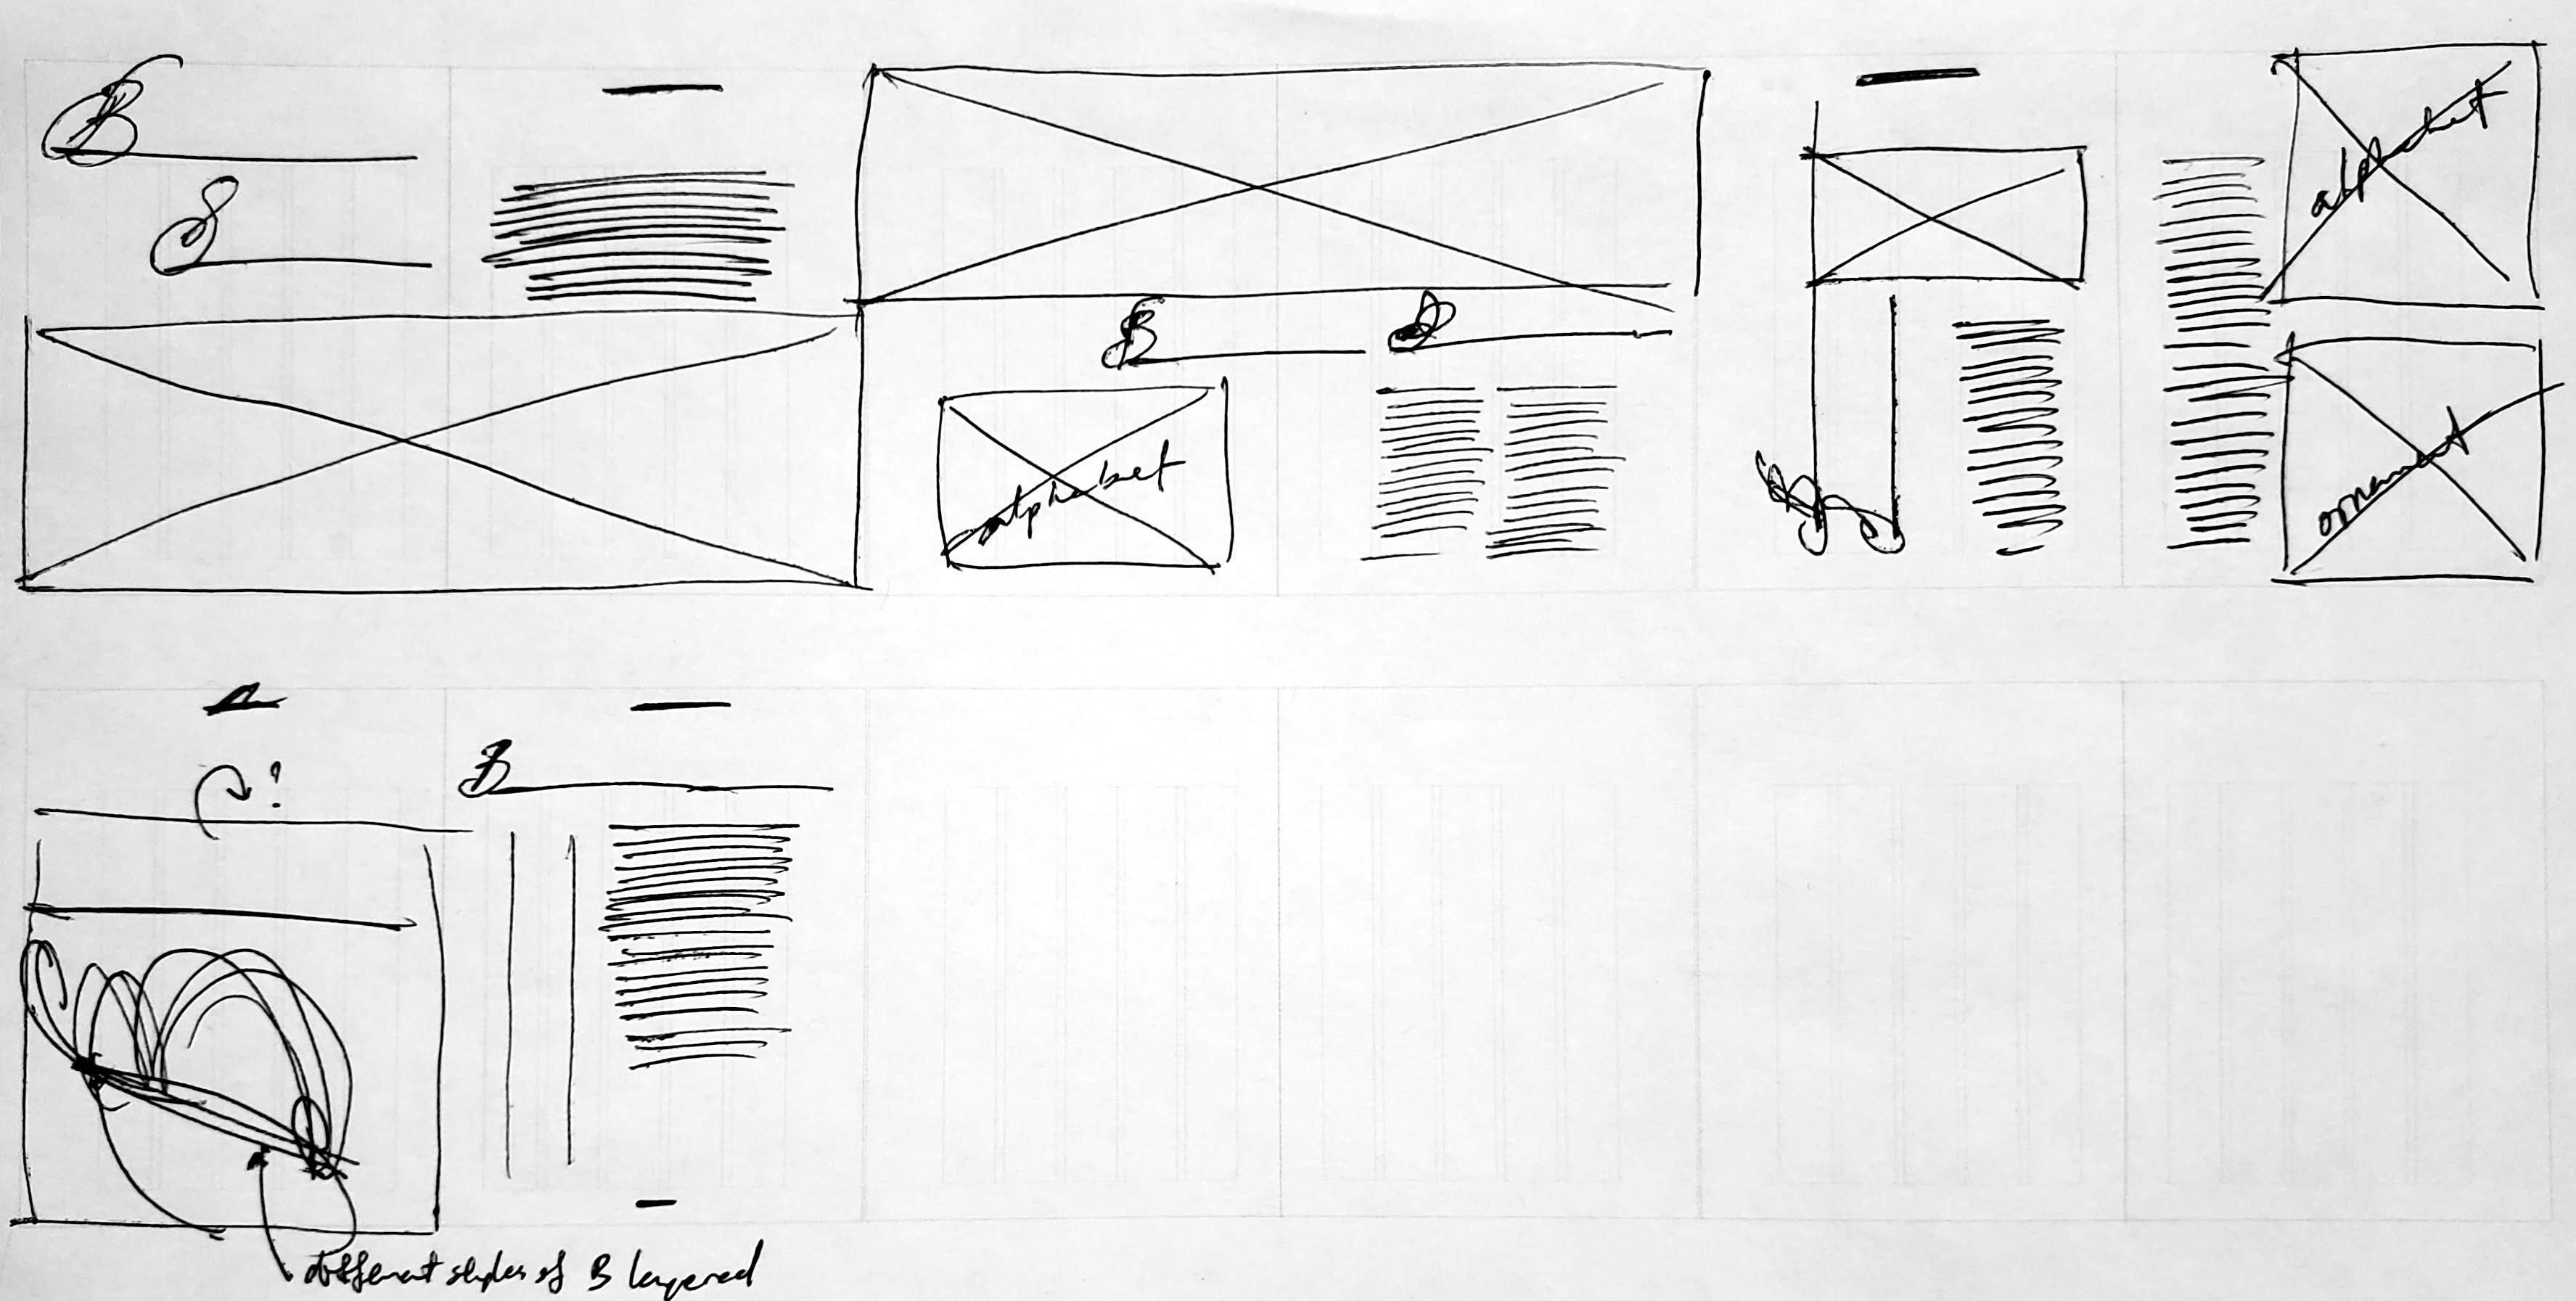 B
S
B
S
alphabet
alphabet
ornament
?
B
different styles of B layered